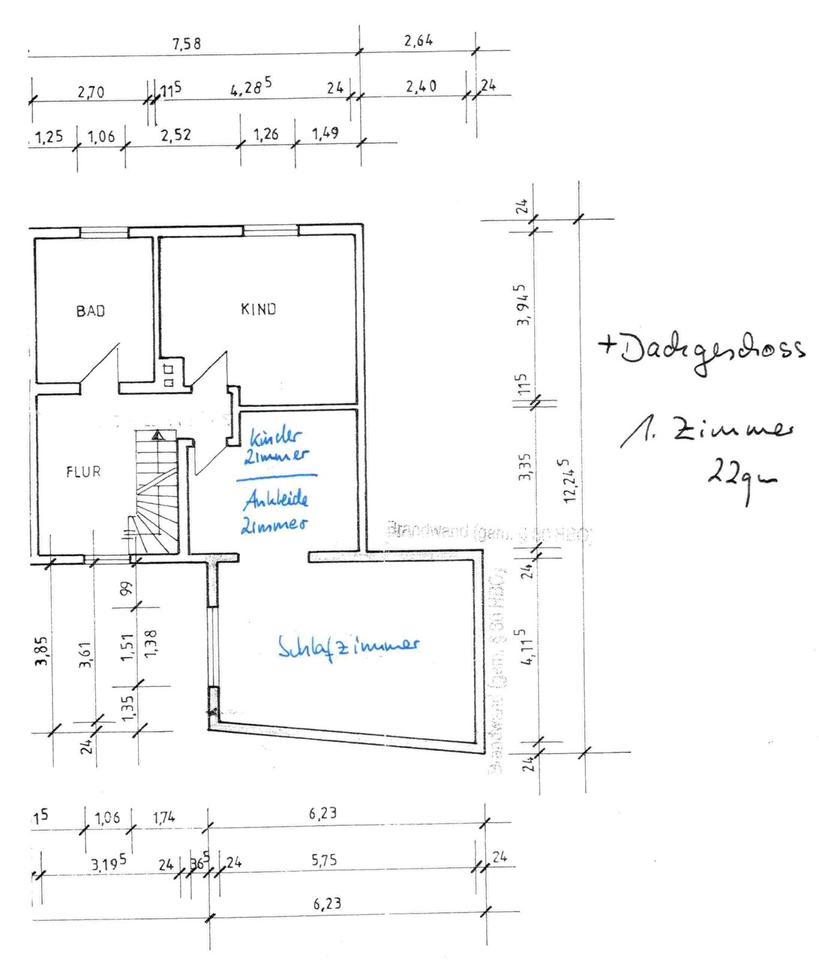 7,58 2,64
2,70 11⁵ 4,28⁵ 24 2,40 24
1,25 1,06 2,52 1,26 1,49
24
3,94⁵
11⁵
3,35
12,24⁵
24
4,11⁵
24
BAD
KIND
FLUR
Kinder
Zimmer
Ankleide
Zimmer
Schlafzimmer
+Dachgeschoss
1. Zimmer
22qm
Brandwand (gem. § 30 HBO)
Brandwand (gem. § 30 HBO)
99
3,85 3,61 1,51 1,38
1,35
24
1⁵ 1,06 1,74 6,23
3,19⁵ 24 36⁵ 24 5,75 24
6,23